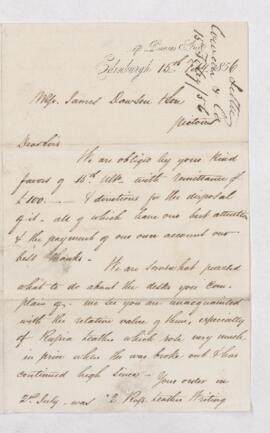 Edinburgh 15th 1856
Messrs James Dawson & Son
Pictou
Dear Sirs
We are obliged by your kind
favors of 14th Ulto with remittance of
£100 & directions for the disposal
of it - all of which have our best attention
& the payment of our own account our
best thanks.
We are somewhat puzzled
what to do about the desks you com-
plain of - we see you are unacquainted
with the relative value of them, especially
of Russia leather which rose very much
in price when the war broke out & has
continued high since - Your order in
2nd July - was "2 Russ. leather Writing